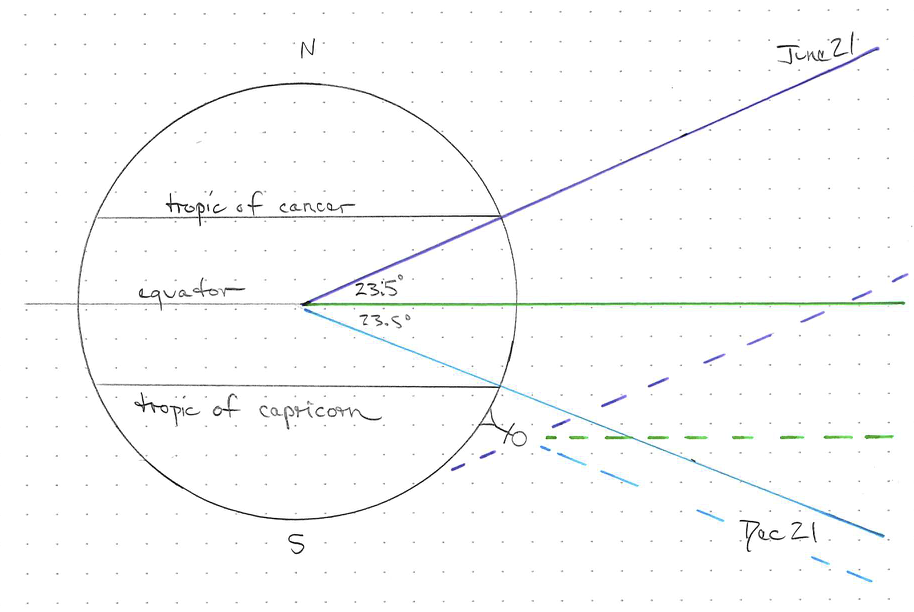 N
June 21
tropic of cancer
equator
23.5°
23.5°
tropic of capricorn
Dec 21
S